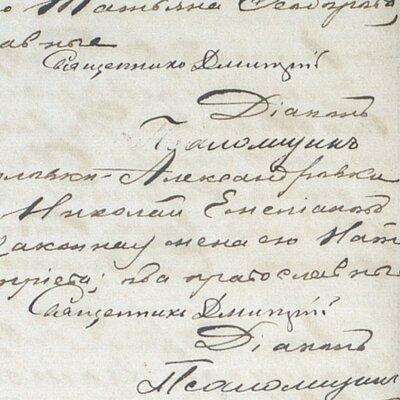 Татьяна Ѳеодорова
Священникъ Дмитрій
Діаконъ
Псаломщикъ
Александровки
Николай
законная жена его Нат
оба православные
Священникъ Дмитрій
Діаконъ
Псаломщик